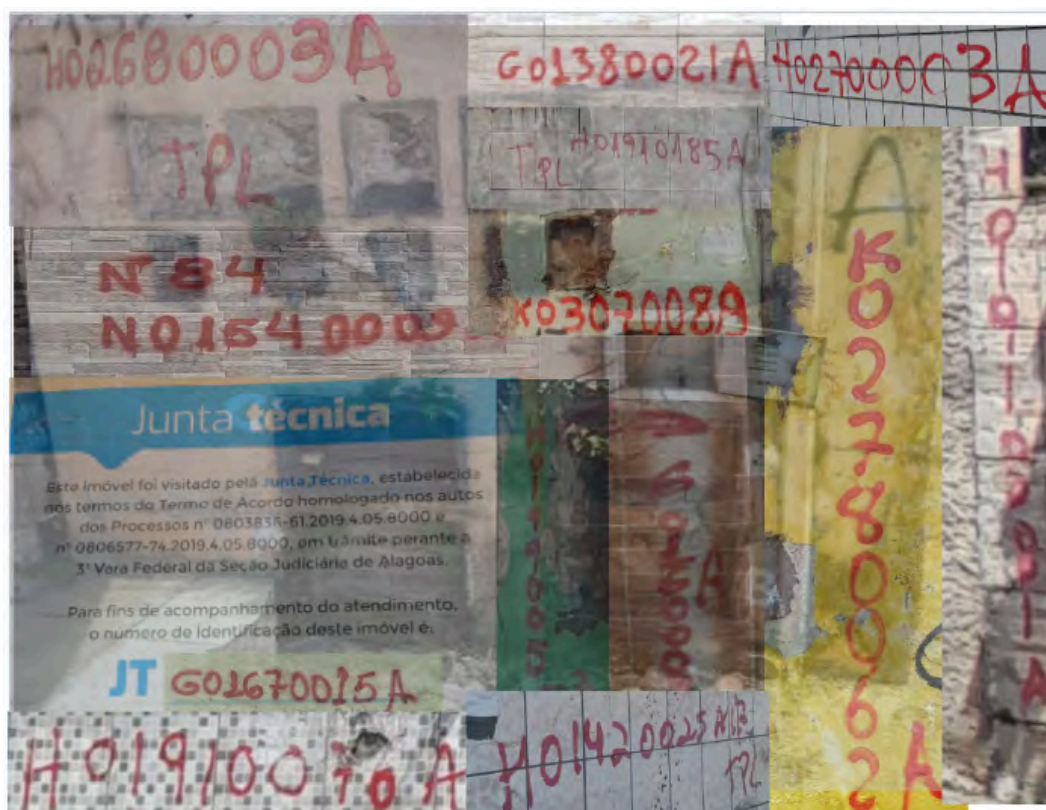 H02680003A
TPL
G01380021A
H02700003A
H01910185A
TPL
N 84
N01540009
K0307008A
A
K02780062
A
Junta técnica
Este imóvel foi visitado pela Junta Técnica, estabelecida
nos termos do Termo de Acordo homologado nos autos
dos Processos nº 0803836-61.2019.4.05.8000 e
nº 0806577-74.2019.4.05.8000, em trâmite perante a
3ª Vara Federal da Seção Judiciária de Alagoas.
Para fins de acompanhamento do atendimento,
o numero de identificação deste imóvel é:
JT G01670015A
A
H01910070A
H01420025A
TPL